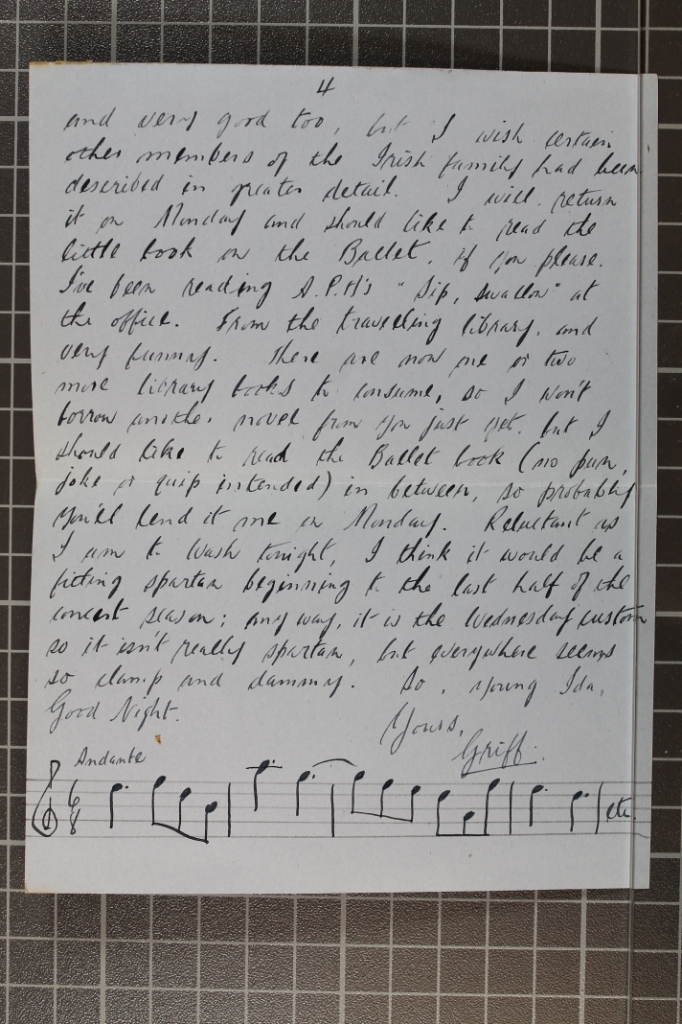 4
and very good too, but I wish certain
other members of the Irish family had been
described in greater detail. I will return
it on Monday and should like to read the
little book on the Ballet, if you please.
I've been reading A.P.H's "Sip, Swallow" at
the office. From the travelling library, and
very funny. There are now one or two
more library books to consume, so I won't
borrow another novel from you just yet, but I
should like to read the Ballet book (no pun,
joke or quip intended) in between, so probably
you'll lend it me on Monday. Reluctant as
I am to wash tonight, I think it would be a
fitting spartan beginning to the last half of the
concert season; anyway, it is the Wednesday custom
so it isn't really spartan, but everywhere seems
so clamp and dammy. So, young Ida,
Good Night.
Yours,
Griff.
Andante
6
8
etc.